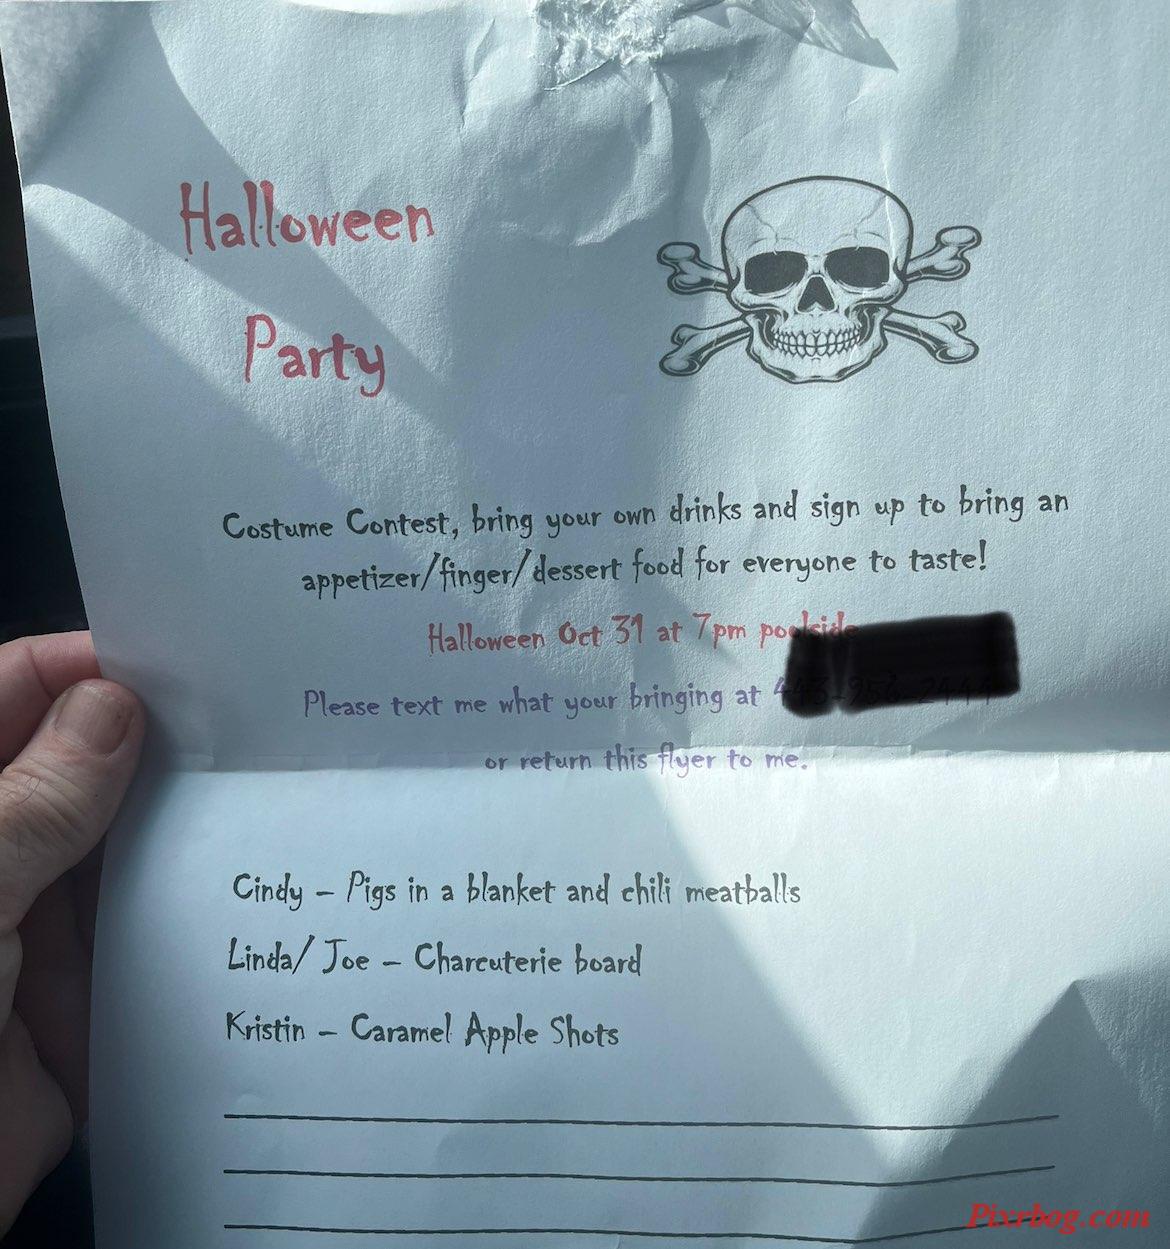 Halloween
Party
Costume Contest, bring your own drinks and sign up to bring an
appetizer/finger/dessert food for everyone to taste!
Halloween Oct 31 at 7pm poolside
Please text me what your bringing at
or return this flyer to me.
Cindy – Pigs in a blanket and chili meatballs
Linda/ Joe – Charcuterie board
Kristin – Caramel Apple Shots
Pixrbog.com